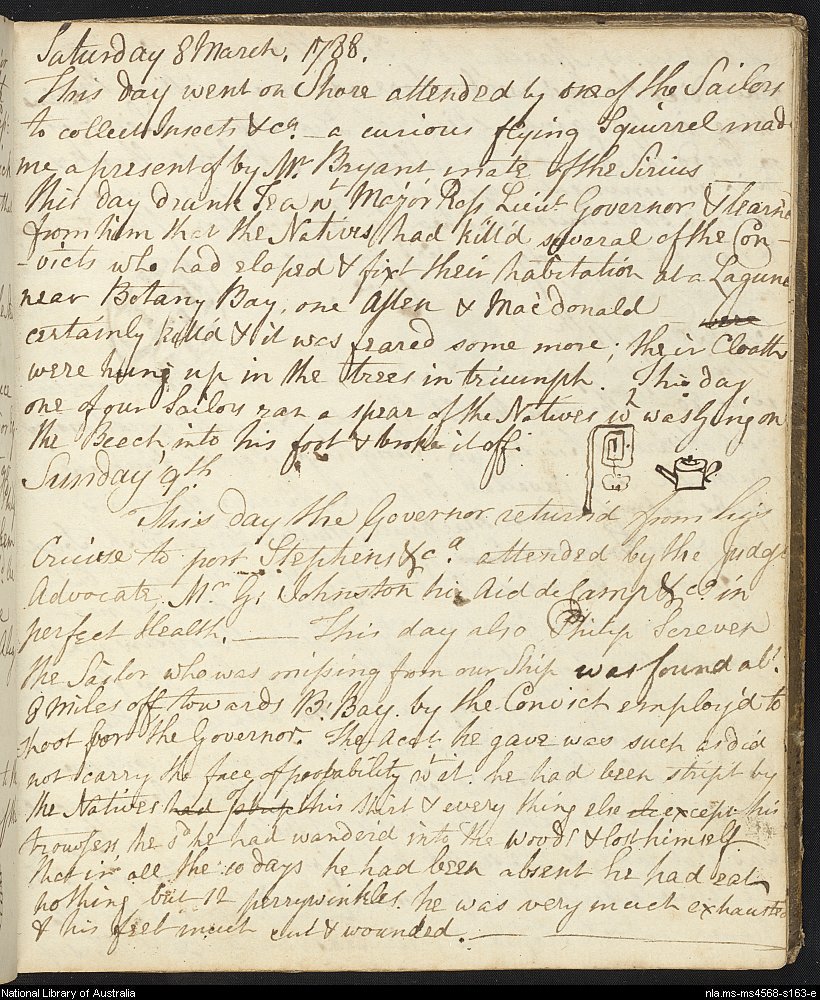 Saturday 8 March. 1788.
This day went on Shore attended by one of the Sailors
to collect Insects &ca. — a curious flying Squirrel mad
me a present of by Mr Bryant mate of the Sirius
This day drank Tea wt Major Ross Lieut Governor & learnd
from him that the Natives had kill'd several of the Con-
victs who had eloped & fixt their habitation at a Lagune
near Botany Bay, one Allen & Mac'donald were
certainly kill'd & it was feared some more; their Cloaths
were hung up in the trees in triumph. This day
one of our Sailors ran a spear of the Natives wh was lying on
the Beech into his foot & broke it off.
Sunday 9th
This day the Governor returnd from his
Cruise to port Stephens &ca. attended by the judge
Advocate, Mr G: Johnston his Aid de Camp & ca. in
perfect Health. — This day also Philip Screven
the Sailor who was missing from our Ship was found abt.
8 miles off towards B: Bay. by the Convict employ'd to
shoot for the Governor. The Acct. he gave was such as did
not carry the face of probability wt it. he had been stript by
the Natives had strip this Shirt & every thing else except his
trowsers he sd he had wanderd into the woods & lost himself
that in all the 10 days he had been absent he had eat
nothing but 12 perrywinkles. he was very much exhausted
& his feet much cut & wounded. —
National Library of Australia
nla.ms-ms4568-s163-e